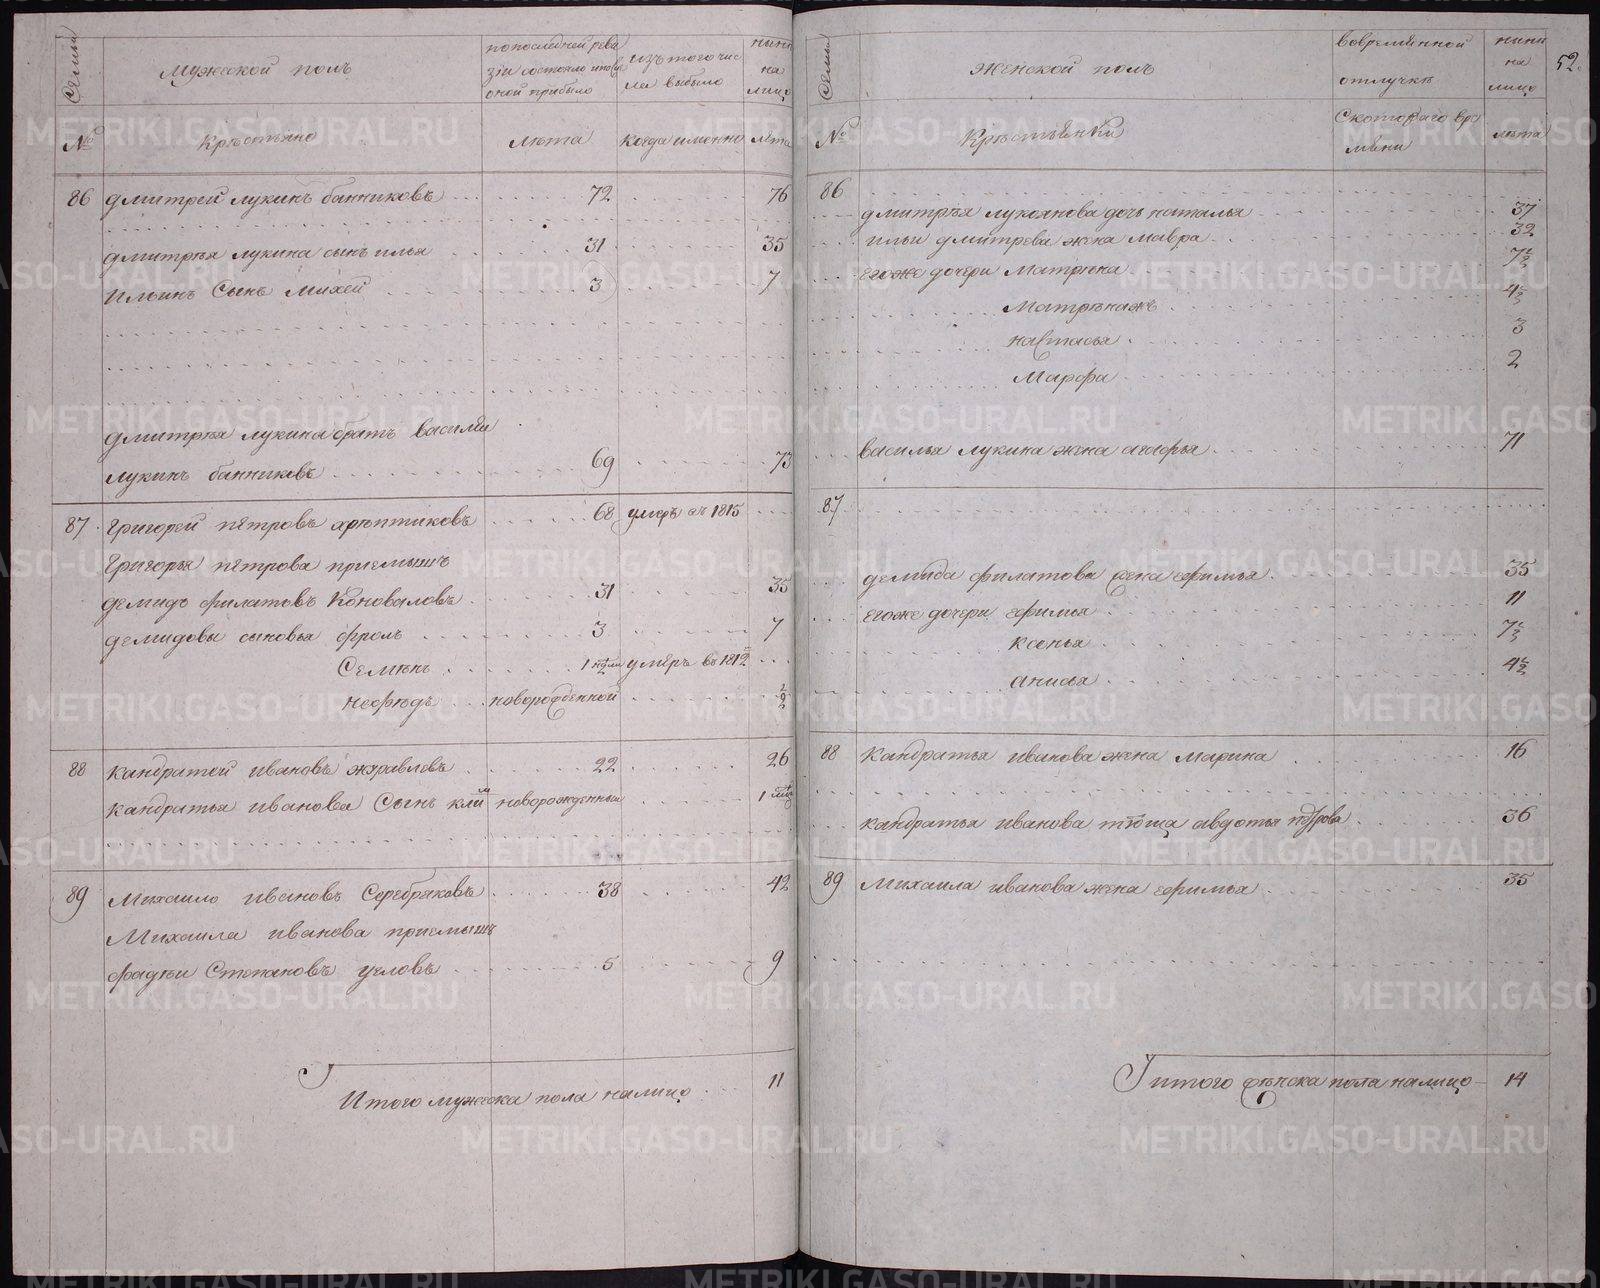 Семьи
мужеской полъ
по последней реви
зіи состояло и после
оной прибыло
изъ того чис
ла выбыло
ныне
на
лицо
№
Крестьяне
лета
когда именно
лета
86 дмитрей лукинъ банниковъ 72 76
дмитрея лукина сынъ илья 31 35
ильинъ Сынъ михей 3 7
дмитрея лукина братъ василей
лукинъ банниковъ 69 73
87 григорей петровъ хрептиковъ 68 умеръ въ 1815
григорья петрова приемышъ
демидъ филатовъ Коноваловъ 31 35
демидовы сыновья фролъ 3 7
Семенъ умеръ въ 1812
нефедъ новорожденной ½
88 кандратей ивановъ журавлевъ 22 26
кандратья иванова Сынъ клим новорожденный 1
89 Михаило ивановъ Серебряковъ 38 42
Михаила иванова приемышъ
фадеи Степановъ 5 9
Итого мужеска пола налицо 11
52.
Семьи
женской полъ
во временной
отлучке
ныне
на
лицо
№
Крестьянки
С котораго вре
мени
лета
86
дмитрея лукоянова дочь наталья 37
ильи дмитрева жена мавра 32
егоже дочери матрена 7½
Матрена ж 4½
настасья 3
Марфа 2
василья лукина жена агафья 71
87
демида филатова жена ефимья 35
егоже дочери ефимья 11
ксенья 7½
анисья 4½
88 Кандратья иванова жена марина 16
кандратья иванова тюща авдотья петрова 36
89 михаила иванова жена ефимья 35
итого женска пола налицо 14
METRIKI.GASO-URAL.RU